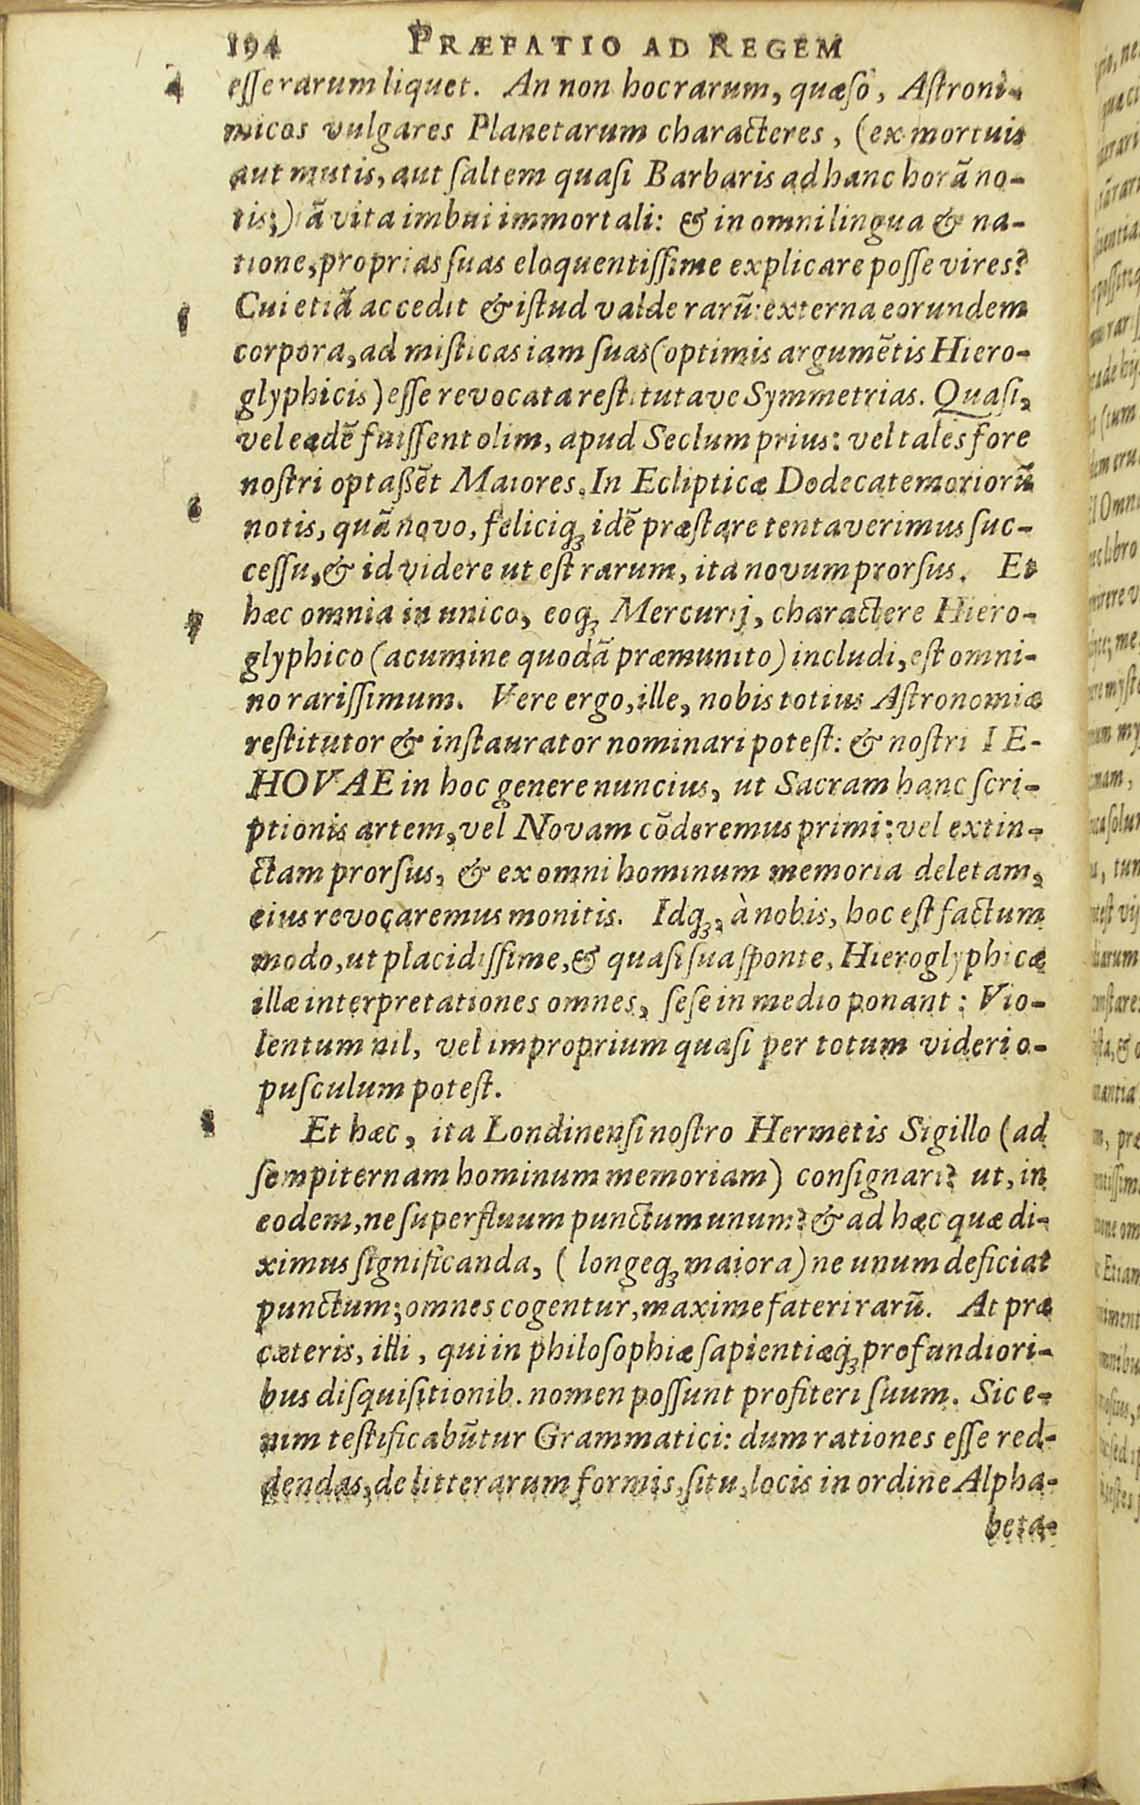 194 PRÆFATIO AD REGEM
4 eſſe rarum liquet. An non hoc rarum, quæſo, Aſtroni-
micos vulgares Planetarum characteres, (ex mortuis
aut mutis, aut ſaltem quaſi Barbaris ad hanc horā no-
tis;) ā vita imbui immortali: & in omni lingua & na-
tione, proprias ſuas eloquentiſſime explicare poſſe vires?
Cui etiā accedit & iſtud valde rarū: externa eorundem
corpora, ad miſticas iam ſuas (optimis argumētis Hiero-
glyphicis) eſſe revocata reſtitutave Symmetrias. Quaſi,
vel eadē fuiſſent olim, apud Seclum prius: vel tales fore
noſtri optaßēt Maiores. In Eclipticæ Dodecatemoriorū
6 notis, quā novo, feliciq; idē præſtare tentaverimus ſuc-
ceſſu, & id videre ut eſt rarum, ita novum prorſus. Et
7 hæc omnia in unico, eoq; Mercurij, charactere Hiero-
glyphico (acumine quodā præmunito) includi, eſt omni-
no rariſſimum. Vere ergo, ille, nobis totius Aſtronomiæ
reſtitutor & inſtaurator nominari poteſt: & noſtri IE-
HOVAE in hoc genere nuncius, ut Sacram hanc ſcri-
ptionis artem, vel Novam cōderemus primi: vel extin-
ctam prorſus, & ex omni hominum memoria deletam,
eius revocaremus monitis. Idq; à nobis, hoc eſt factum
modo, ut placidiſſime, & quaſi ſua ſponte, Hieroglyphicæ
illæ interpretationes omnes, ſeſe in medio ponant: Vio-
lentum nil, vel improprium quaſi per totum videri o-
puſculum poteſt.
8 Et hæc, ita Londinenſi noſtro Hermetis Sigillo (ad
ſempiternam hominum memoriam) conſignari? ut, in
eodem, ne ſuperfluum punctum unum? & ad hæc quæ di-
ximus ſignificanda, ( longeq; maiora) ne unum deficiat
punctum; omnes cogentur, maxime fateri rarū. At præ
cæteris, illi, qui in philoſophiæ ſapientiæq; profundiori-
bus diſquiſitionib. nomen poſſunt profiteri ſuum. Sic e-
nim teſtificabūtur Grammatici: dum rationes eſſe red-
dendas, de litterarum formis, ſitu, locis in ordine Alpha-
beta-